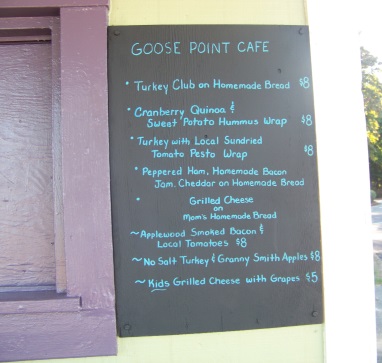 GOOSE POINT CAFE
* Turkey Club on Homemade Bread $8
* Cranberry Quinoa &
Sweet Potato Hummus Wrap $8
* Turkey with Local Sundried
Tomato Pesto Wrap $8
* Peppered Ham, Homemade Bacon
Jam, Cheddar on Homemade Bread
* Grilled Cheese
on
Mom's Homemade Bread
~Applewood Smoked Bacon &
Local Tomatoes $8
~No Salt Turkey & Granny Smith Apples $8
~Kids Grilled Cheese with Grapes $5